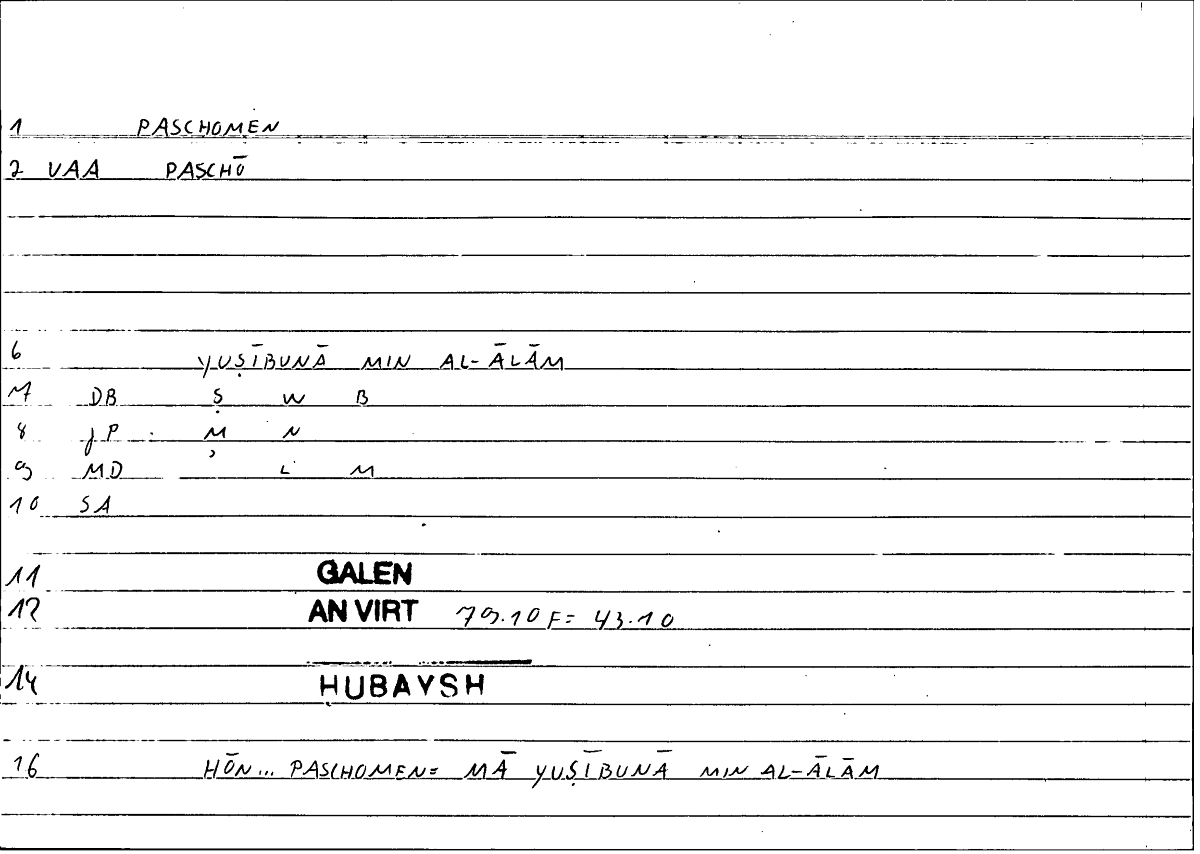 1 PASCHOMEN
2 VAA PASCHŌ
6 YUṢĪBUNĀ MIN AL-ĀLĀM
7 DB Ṣ W B
8 JP M N
9 MD ʾ L M
10 SA
11 GALEN
12 AN VIRT 79.10 F= 43.10
14 ḤUBAYSH
16 HŌN... PASCHOMEN= MĀ YUṢĪBUNĀ MIN AL-ĀLĀM